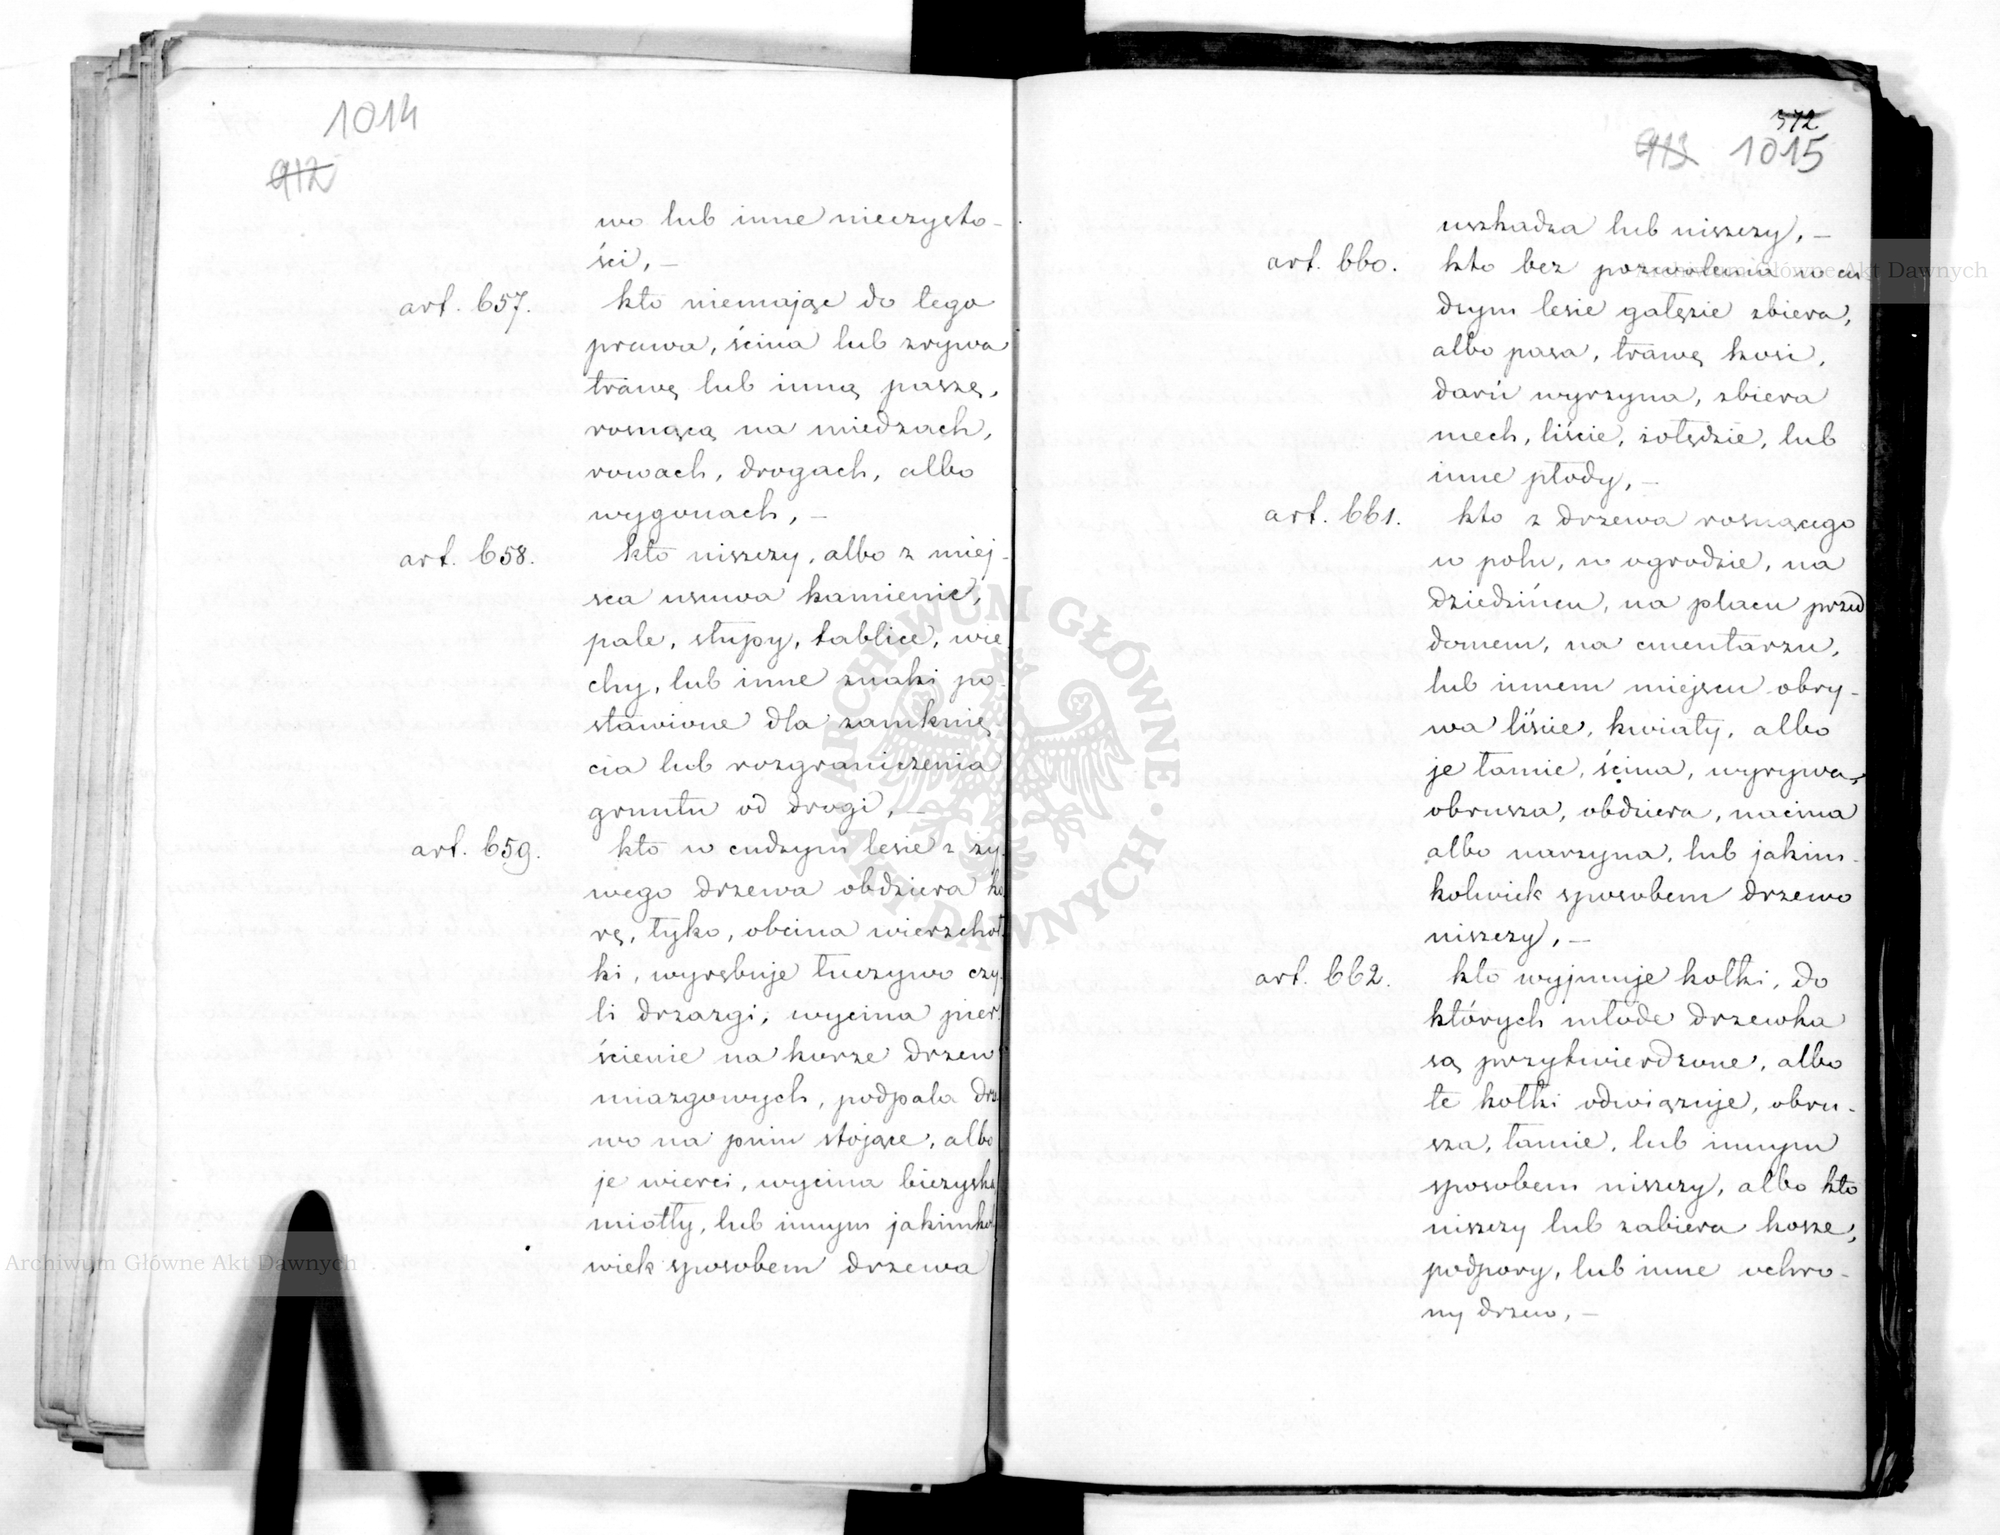 1014
912
wo lub inne nieczysto-
ści, —
art. 657. kto niemając do tego
prawa, ścina lub zrywa
trawę lub inną paszę,
rosnącą na miedzach,
rowach, drogach, albo
wygonach, —
art. 658. kto niszczy, albo z miej-
sca usuwa kamienie,
pale, słupy, tablice, wie-
chy, lub inne znaki po-
stawione dla zamknię-
cia lub rozgraniczenia
gruntu od drogi, —
art. 659. kto w cudzym lesie z ży-
wego drzewa obdziera ko-
rę, łyko, obcina wierzchoł-
ki, wyrębuje łuczywo czy-
li drzazgi, wycina pier-
ścienie na korze drzew
miazgowych, podpala drze-
wo na pniu stojące, albo
je wierci, wycina biczyska
miotły, lub innym jakimkol-
wiek sposobem drzewa
372
913 1015
uszkadza lub niszczy, —
art. 660. kto bez pozwolenia w cu
dzym lesie gałęzie zbiera,
albo pasa, trawę kosi,
darń wyrzyna, zbiera
mech, liście, żołędzie, lub
inne płody, —
art. 661. kto z drzewa rosnącego
w polu, w ogrodzie, na
dziedzińcu, na placu przed
domem, na cmentarzu,
lub innem miejscu obry-
wa liście, kwiaty, albo
je łamie, ścina, wyrywa,
obrusza, obdziera, nacina
albo narzyna, lub jakim-
kolwiek sposobem drzewo
niszczy, —
art. 662. kto wyjmuje kołki, do
których młode drzewka
są przytwierdzone, albo
te kołki odwiązuje, obru-
sza, łamie, lub innym
sposobem niszczy, albo kto
niszczy lub zabiera kosze,
podpory, lub inne ochro-
ny drzew, —
Archiwum Główne Akt Dawnych
Archiwum Główne Akt Dawnych
ARCHIWUM GŁÓWNE AKT DAWNYCH